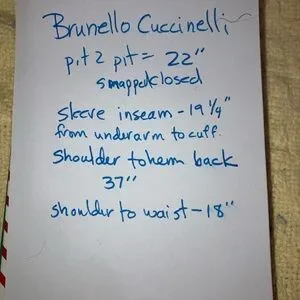 Brunello Cuccinelli
pit 2 pit = 22"
snapped closed
sleeve inseam - 19 1/4"
from underarm to cuff.
Shoulder to hem back
37"
shoulder to waist - 18"